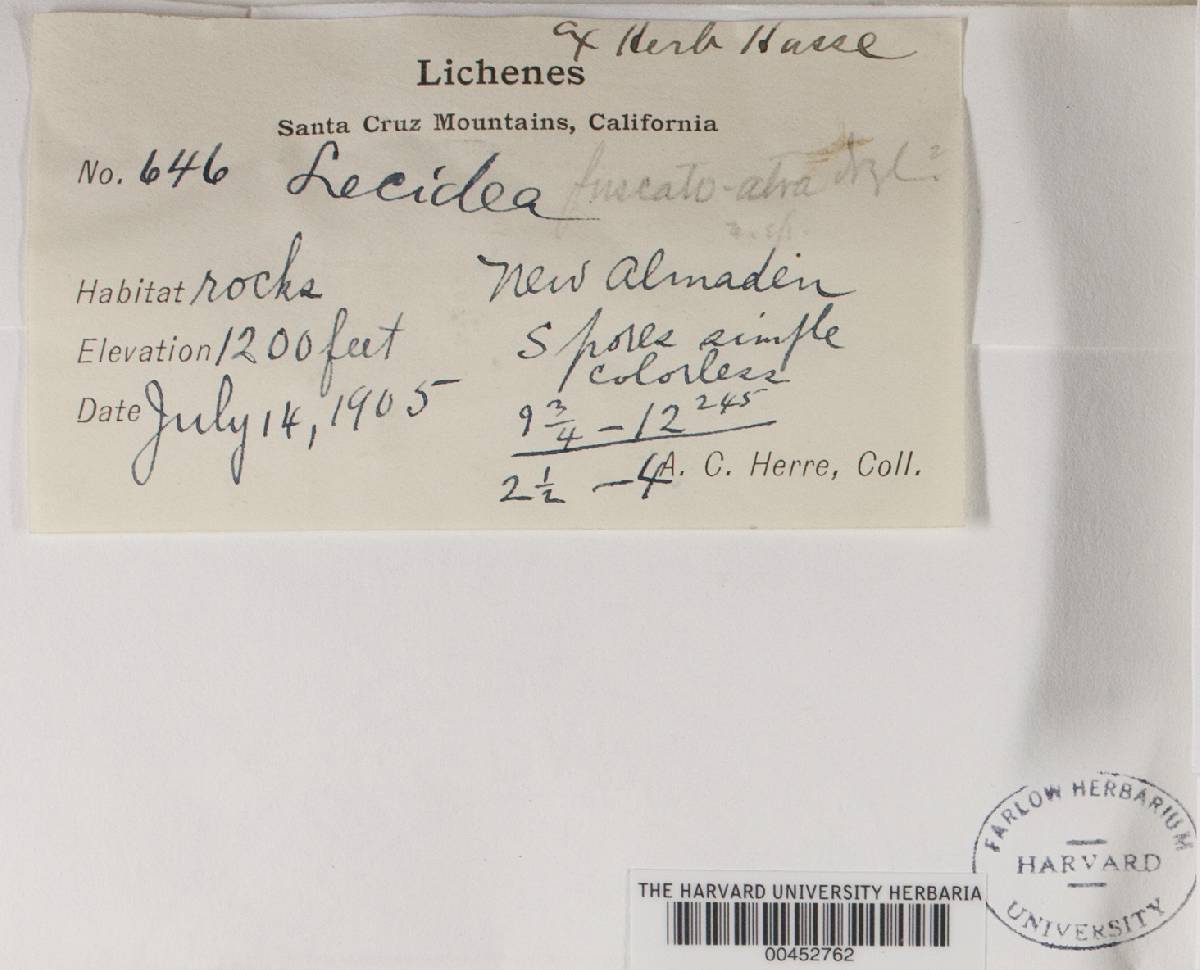 ex Herb Hasse
Lichenes
Santa Cruz Mountains, California
No. 646 Lecidea fuscato-atra Nyl.?
n. sp.
Habitat rocks
New Almaden
Elevation 1200 feet
Spores simple
colorless
Date July 14, 1905
9 3/4 – 12 245
2 1/2 – 4
A. C. Herre, Coll.
FARLOW HERBARIUM
HARVARD
UNIVERSITY
THE HARVARD UNIVERSITY HERBARIA
00452762